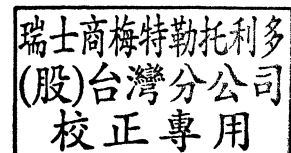 瑞士商梅特勒托利多
(股)台灣分公司
校正專用